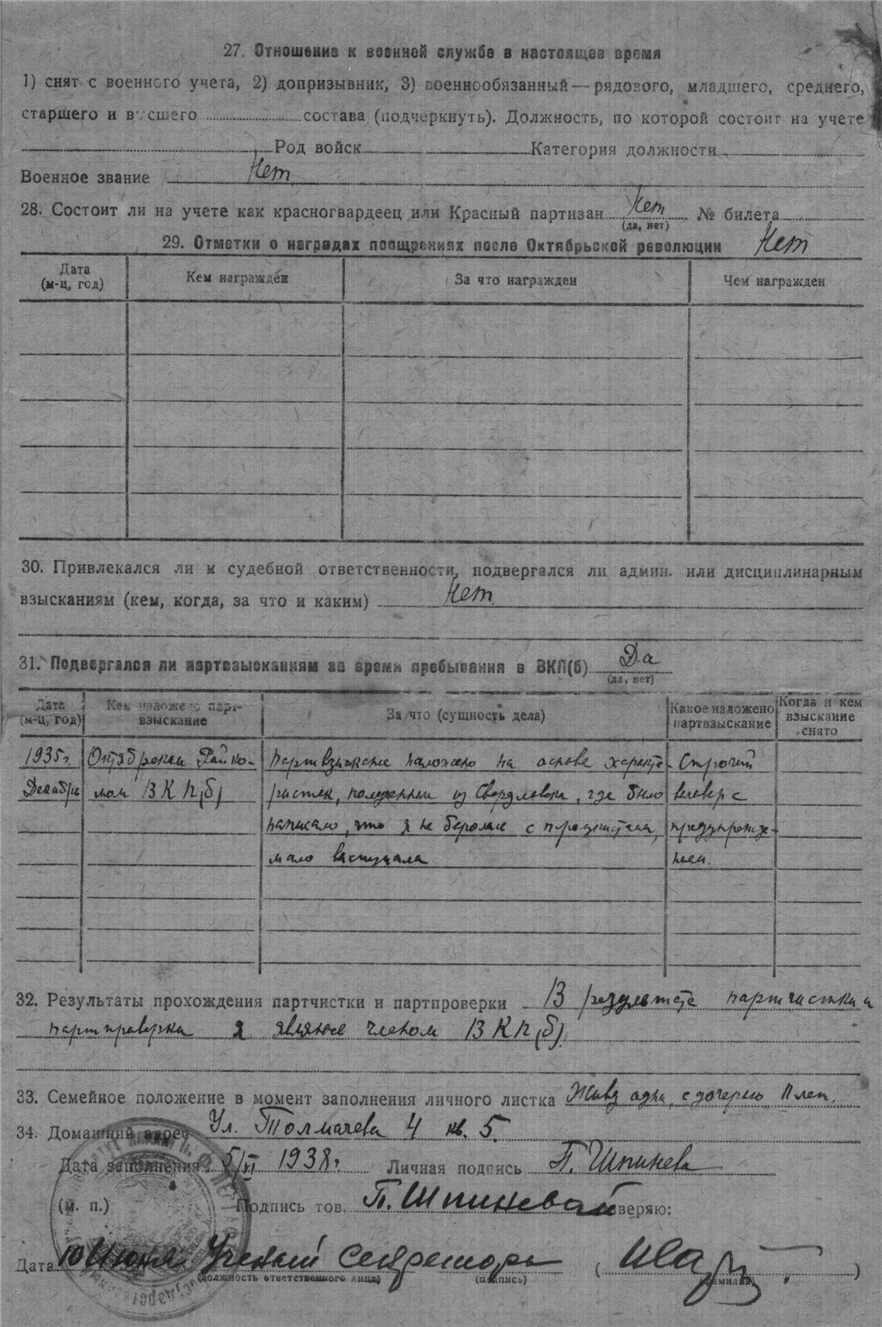 27. Отношение к военной службе в настоящее время
1) снят с военного учета, 2) допризывник, 3) военнообязанный — рядового, младшего, среднего,
старшего и высшего состава (подчеркнуть). Должность, по которой состоит на учете
Род войск Категория должности
Военное звание Нет
28. Состоит ли на учете как красногвардеец или Красный партизан Нет № билета
(да, нет)
29. Отметки о наградах поощрениях после Октябрьской революции Нет
Дата (м-ц, год) Кем награжден За что награжден Чем награжден
30. Привлекался ли к судебной ответственности, подвергался ли админ. или дисциплинарным
взысканиям (кем, когда, за что и каким) Нет
31. Подвергался ли партвзысканиям за время пребывания в ВКП(б) Да
(да, нет)
Дата (м-ц, год) Кем наложено партвзыскание За что (сущность дела) Какое наложено партвзыскание Когда и кем взыскание снято
1935г. Октябрьским Райко- Партвзыскание наложено на основе характе- Строгий
Декабрь мом ВКП(б) ристики, полученной из Свердловска, где было выговор с
написано, что я не боролась с троцкистами, предупрежде-
мало выступала нием.
32. Результаты прохождения партчистки и партпроверки В результате партчистки и
партпроверки я являюсь членом ВКП(б).
33. Семейное положение в момент заполнения личного листка Живу одна, с дочерью 11 лет.
34. Домашний адрес Ул. Толмачева 4 кв. 5.
Дата заполнения 5/VI 1938г. Личная подпись П. Шпинева
(м. п.) Подпись тов. П. Шпиневой заверяю:
Дата 10 Июня Ученый Секретарь ( )
(должность ответственного лица) (подпись) (фамилия)